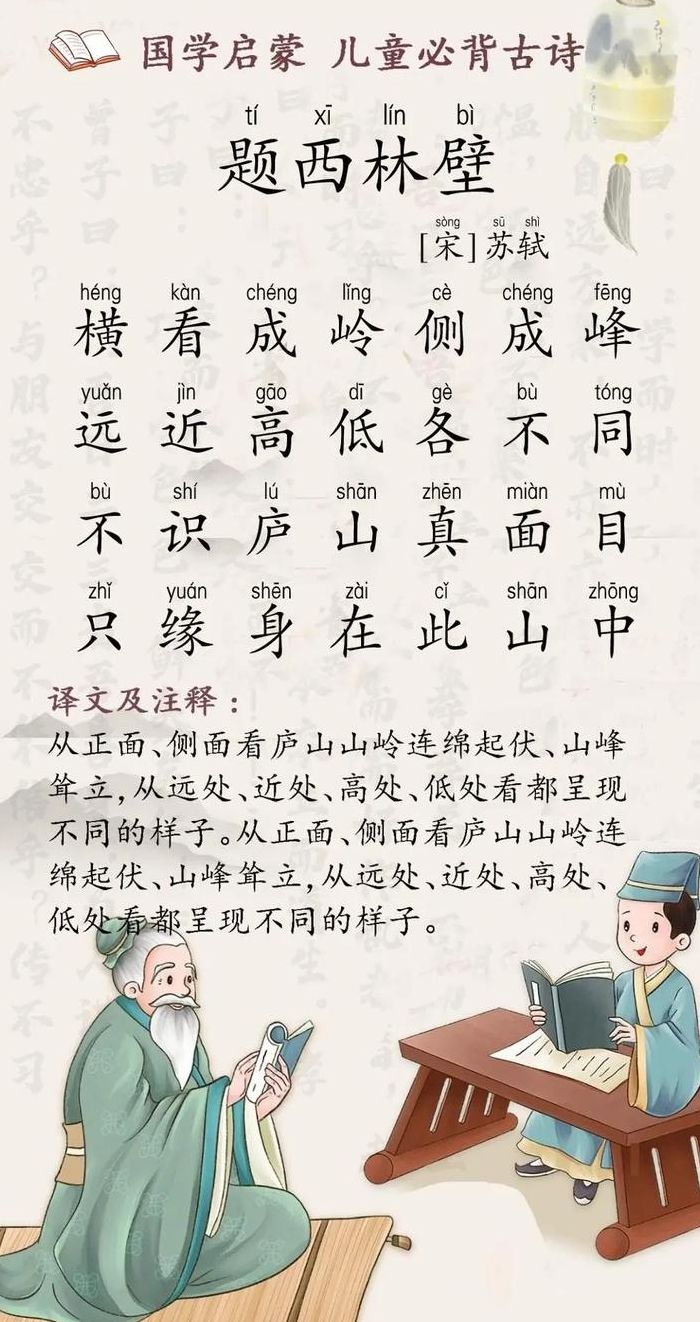 国学启蒙 儿童必背古诗
tí xī lín bì
题西林壁
sòng sū shì
[宋]苏轼
héng kàn chéng lǐng cè chéng fēng
横看成岭侧成峰
yuǎn jìn gāo dī gè bù tóng
远近高低各不同
bù shí lú shān zhēn miàn mù
不识庐山真面目
zhǐ yuán shēn zài cǐ shān zhōng
只缘身在此山中
译文及注释：
从正面、侧面看庐山山岭连绵起伏、山峰
耸立,从远处、近处、高处、低处看都呈现
不同的样子。从正面、侧面看庐山山岭连
绵起伏、山峰耸立,从远处、近处、高处、
低处看都呈现不同的样子。